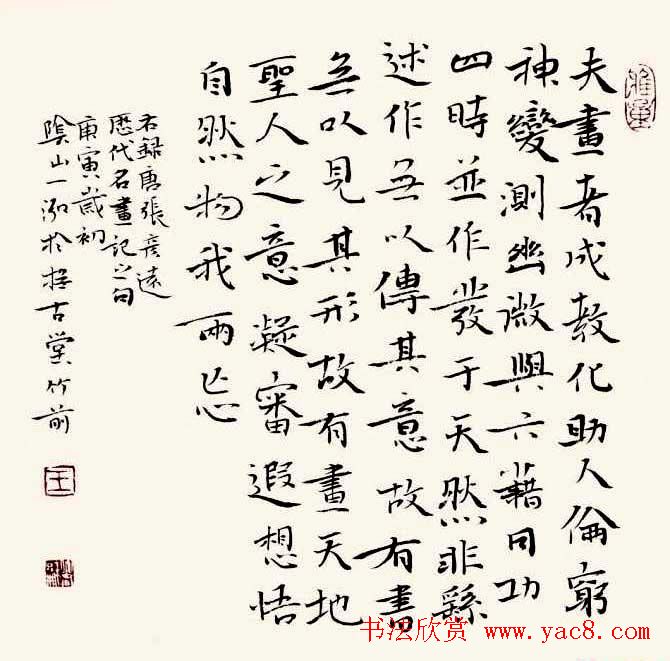 夫畫者成教化助人倫窮
神變測幽微與六藉同功
四時並作發于天然非繇
述作無以傳其意故有書
無以見其形故有畫天地
聖人之意凝審遐想悟
自然物我兩忘
右錄唐張彦遠
歷代名畫記之句
庚寅歲初
陰山一泓於古堂竹前
王
书法欣赏 www.yac8.com